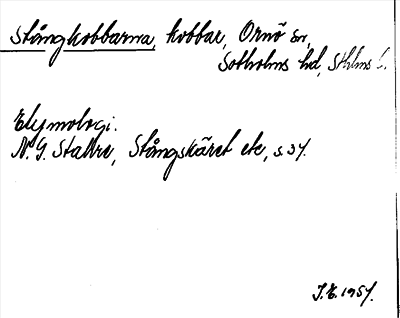 Stångkobbarna, kobbar, Ornö sn,
Sotholms hd, Sthlms l.
Etymologi.
N. G. Stahre, Stångskäret etc, s. 37.
J.E. 1957.